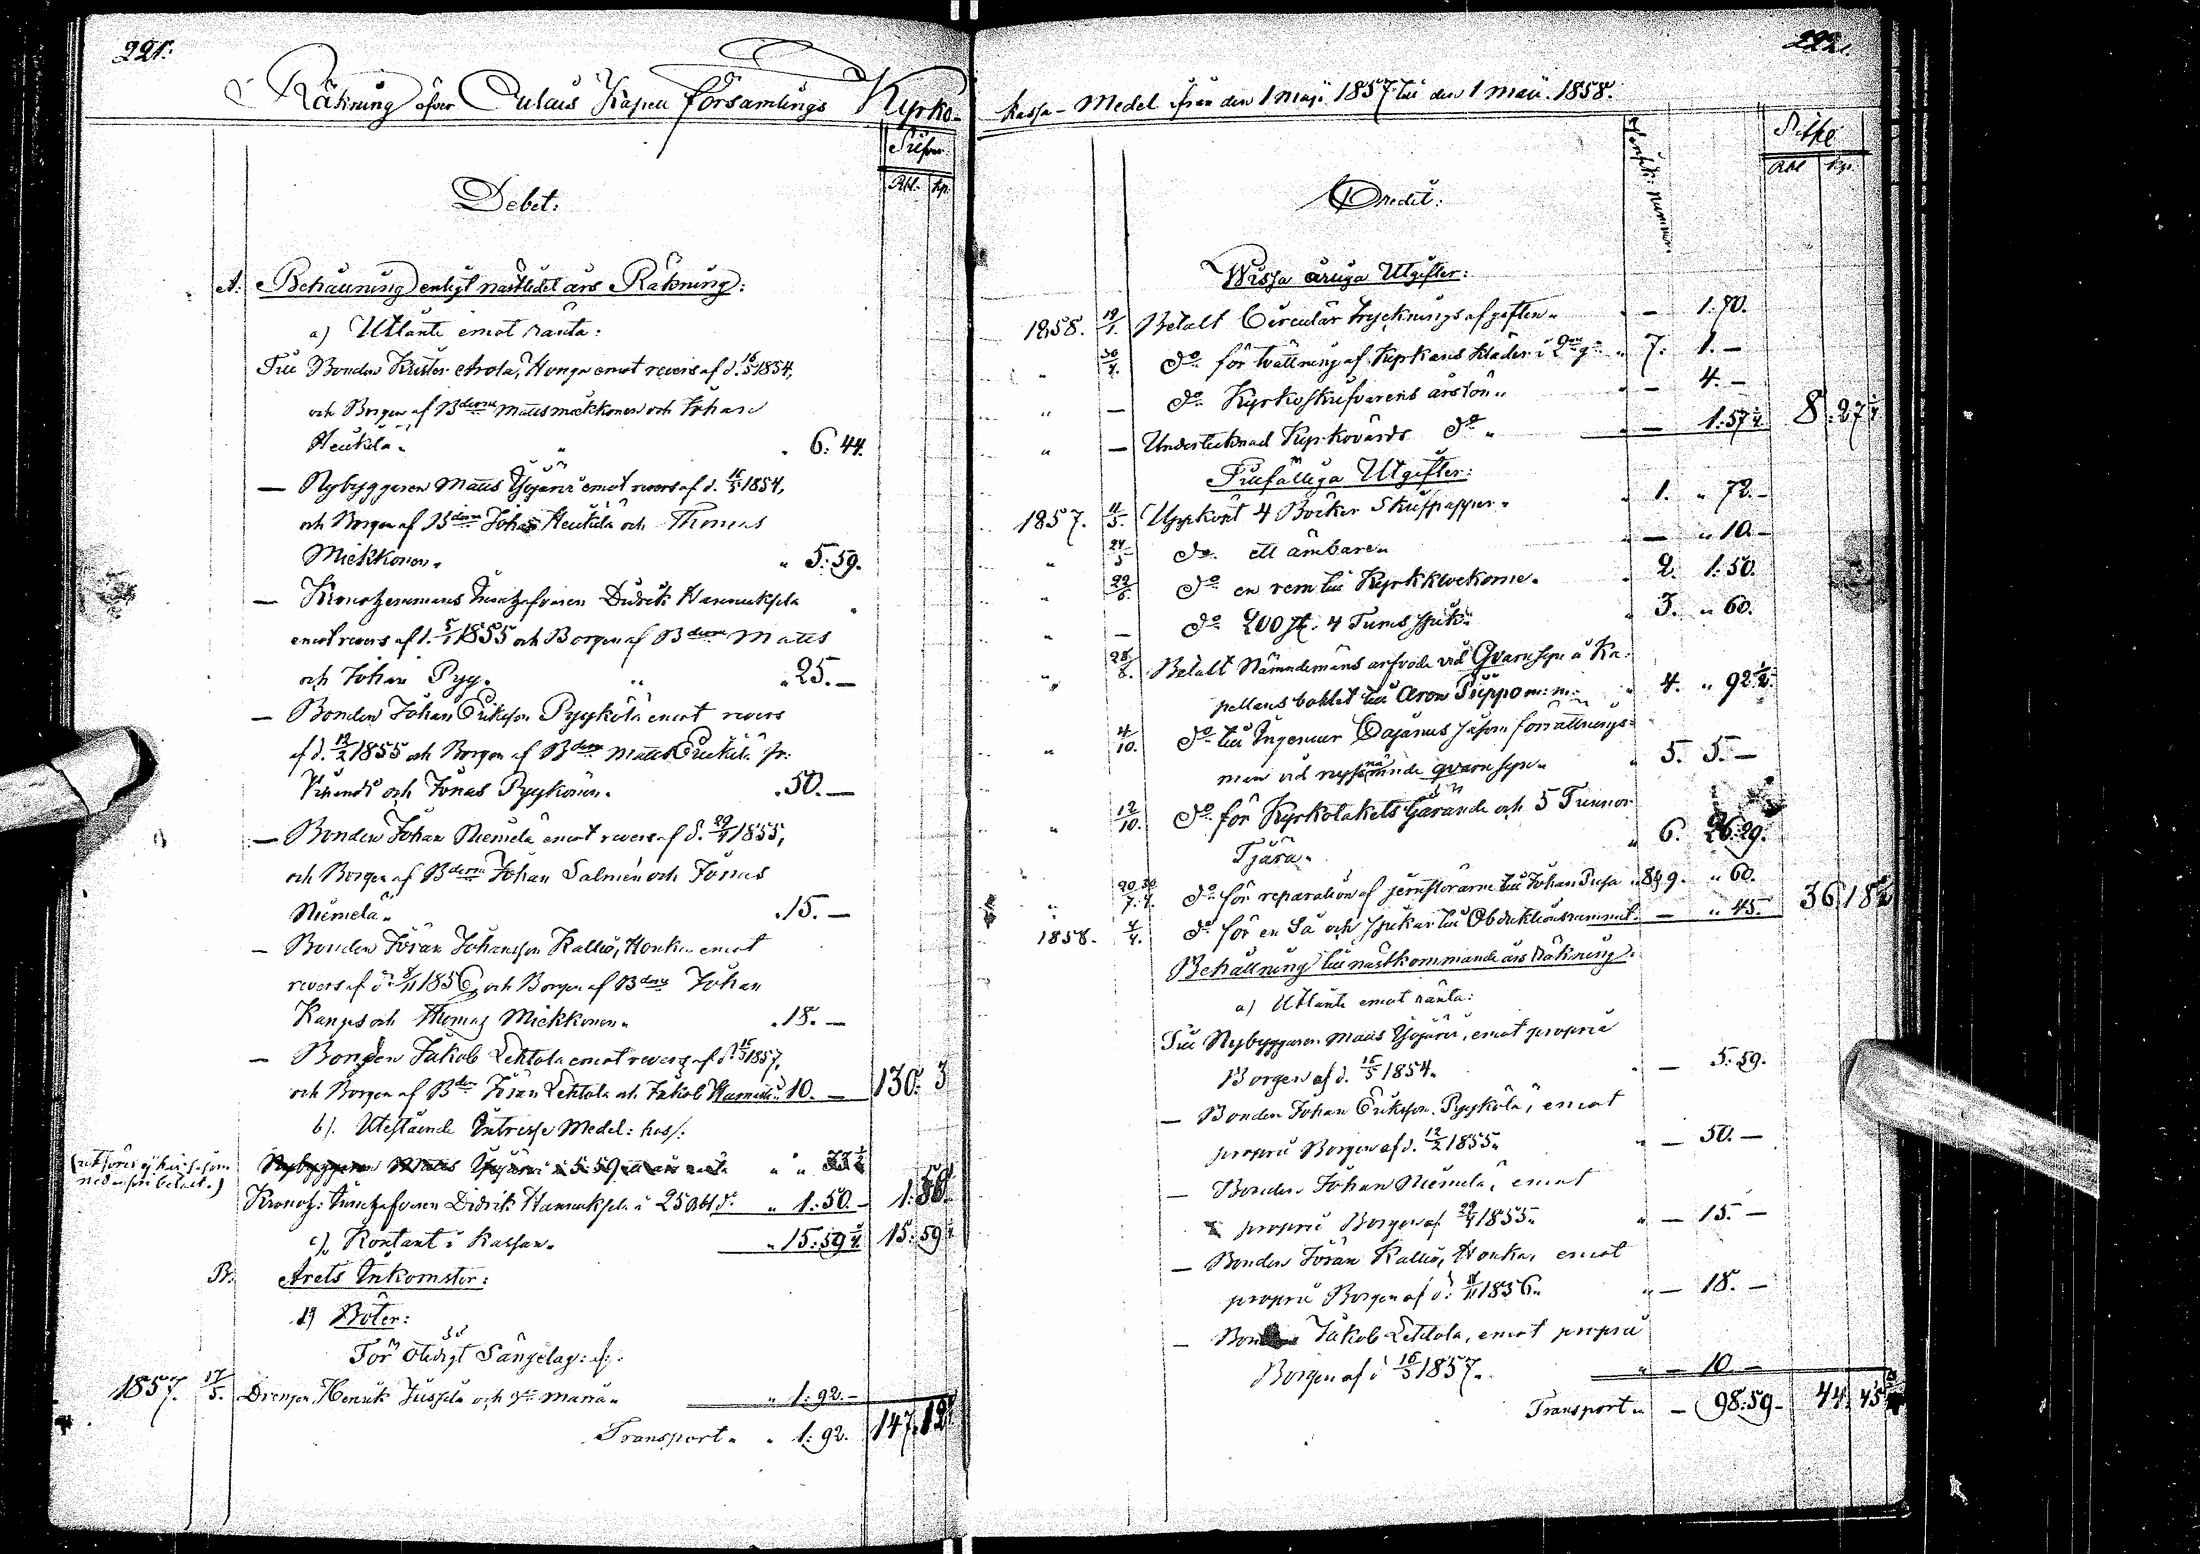 221.
Räkning öfver Pulais Kapell församlings Kyrko-
Silfver.
Rbl. kp.
Debet:
A. Behållning enligt nästledet års Räkning:
a) Utlånte emot ränta:
Till Bonden Krister Arola, Honga emot revers af d. 16/5 1854,
och Borgen af Bderne Matts Mickkonen och Johan
Heikilä „ „ 6: 44.
— Nybyggaren Matts Yojärvi emot revers af d. 16/5 1854,
och Borgen af Bderne Johan Heikilä och Thomas
Mickkonen „ 5: 59.
— Didrik Hannuksela
emot revers af d. 5/1 1855 och Borgen af Bderne Matts
och Johan Pyy. „ „ 25. —
— Bonden Johan Eriksson Pyykölä emot revers
af d. 12/2 1855 och Borgen af Bderne Matts
och Jonas Pyykönen. „ 50. —
— Bonden Johan Niemelä emot revers af d. 29/4 1855,
och Borgen af Bderne Johan Salmén och Jonas
Niemelä „ „ 15. —
— Bonden Jöran Johansson Kallio, Honka emot
revers af d. 8/11 1856, och Borgen af Bderne Johan
Kangas och Thomas Mickkonen „ „ 18. —
— Bonden Jakob Lehtola emot revers af d. 16/5 1857,
och Borgen af Bder Jöran Lehtola och Jakob 10. — 130: 3
b). Utestående Intresse Medel: hos:
(utföres ej här såsom
nedanföre betalt.)
Nybyggaren Matts Yojärvi à 5:59 ränta „ „ 33 1/2
Didrik Hannuksela à 25 Rbl do. „ 1: 50. — 1: 50
c). Kontant i Kassan. „ 15: 59 1/4 15: 59 1/4
B. Årets Inkomster:
1) Böter:
För Olidigt Sängelag: af:
1857. 17/5. Drengen Henrik Jussila och Maria „ „ 1: 92. —
Transport „ „ 1: 92. 147. 12
222.
Kassa-Medel ifrån den 1 Maji 1857 till den 1 Maii 1858.
Verifik: Nummer.
Rbl kp.
Credit:
Wissa årliga Utgifter:
1858. 12/1. Betalt Circulär trycknings afgiften „ — 1: 70.
„ 30/4. do för tvättning af Kyrkans kläder i 2ne g. „ 7. 1. —
„ — do Kyrkoskrifvarens årslön „ — 4. —
„ — Undertecknad Kyrkovärds do „ — 1: 57 1/4 8. 27 1/4
Tillfälliga Utgifter:
1857. 11/5. Uppköpt 4 Böcker Skrifpapper „ „ 1. „ 72. —
„ 24/5 do. ett ämbare „ — „ 10. —
„ 22/6. do en rem till Kyrkklockorne. „ 2. 1: 50.
„ — do 200 st. 4 Tums spik „ „ 3. „ 60.
„ 28/8. Betalt Nämndemäns arfvode vid Qvarn syn å Ka-
pellans bohlet till Aron Piippo m: m: „ 4. „ 92 1/2.
„ 4/10. do till Ingenieur Cajanus såsom förrättnings-
man vid nyssnämnde qvarn syn „ „ 5. 5. —
„ 12/10. do för Kyrkotakets tjärande och 5 Tunnor
Tjära. „ 6. 26: 29.
„ do för reparation af jernstörarne till Johan Pusa „ 8 & 9. „ 60.
1858. 4/4. do för en Så och spikar till Obduktionsrummet. — „ 45. 36. 18 1/2
Behållning till nästkommande års Räkning.
a) Utlånte emot ränta:
Till Nybyggaren Matts Yojärvi, emot proprie
Borgen af d. 16/5 1854. „ — 5: 59.
— Bonden Johan Eriksson Pyykölä, emot
proprie Borgen af d. 12/2 1855. „ — 50. —
— Bonden Johan Niemelä, emot
proprie Borgen af 29/4 1855. „ — 15. —
— Bonden Jöran Kallio, Honka, emot
proprie Borgen af d. 8/11 1856. „ — 18. —
— Bonden Jakob Lehtola, emot proprie
Borgen af d 16/5 1857. „ — 10 —
Transport „ — 98: 59 — 44. 45